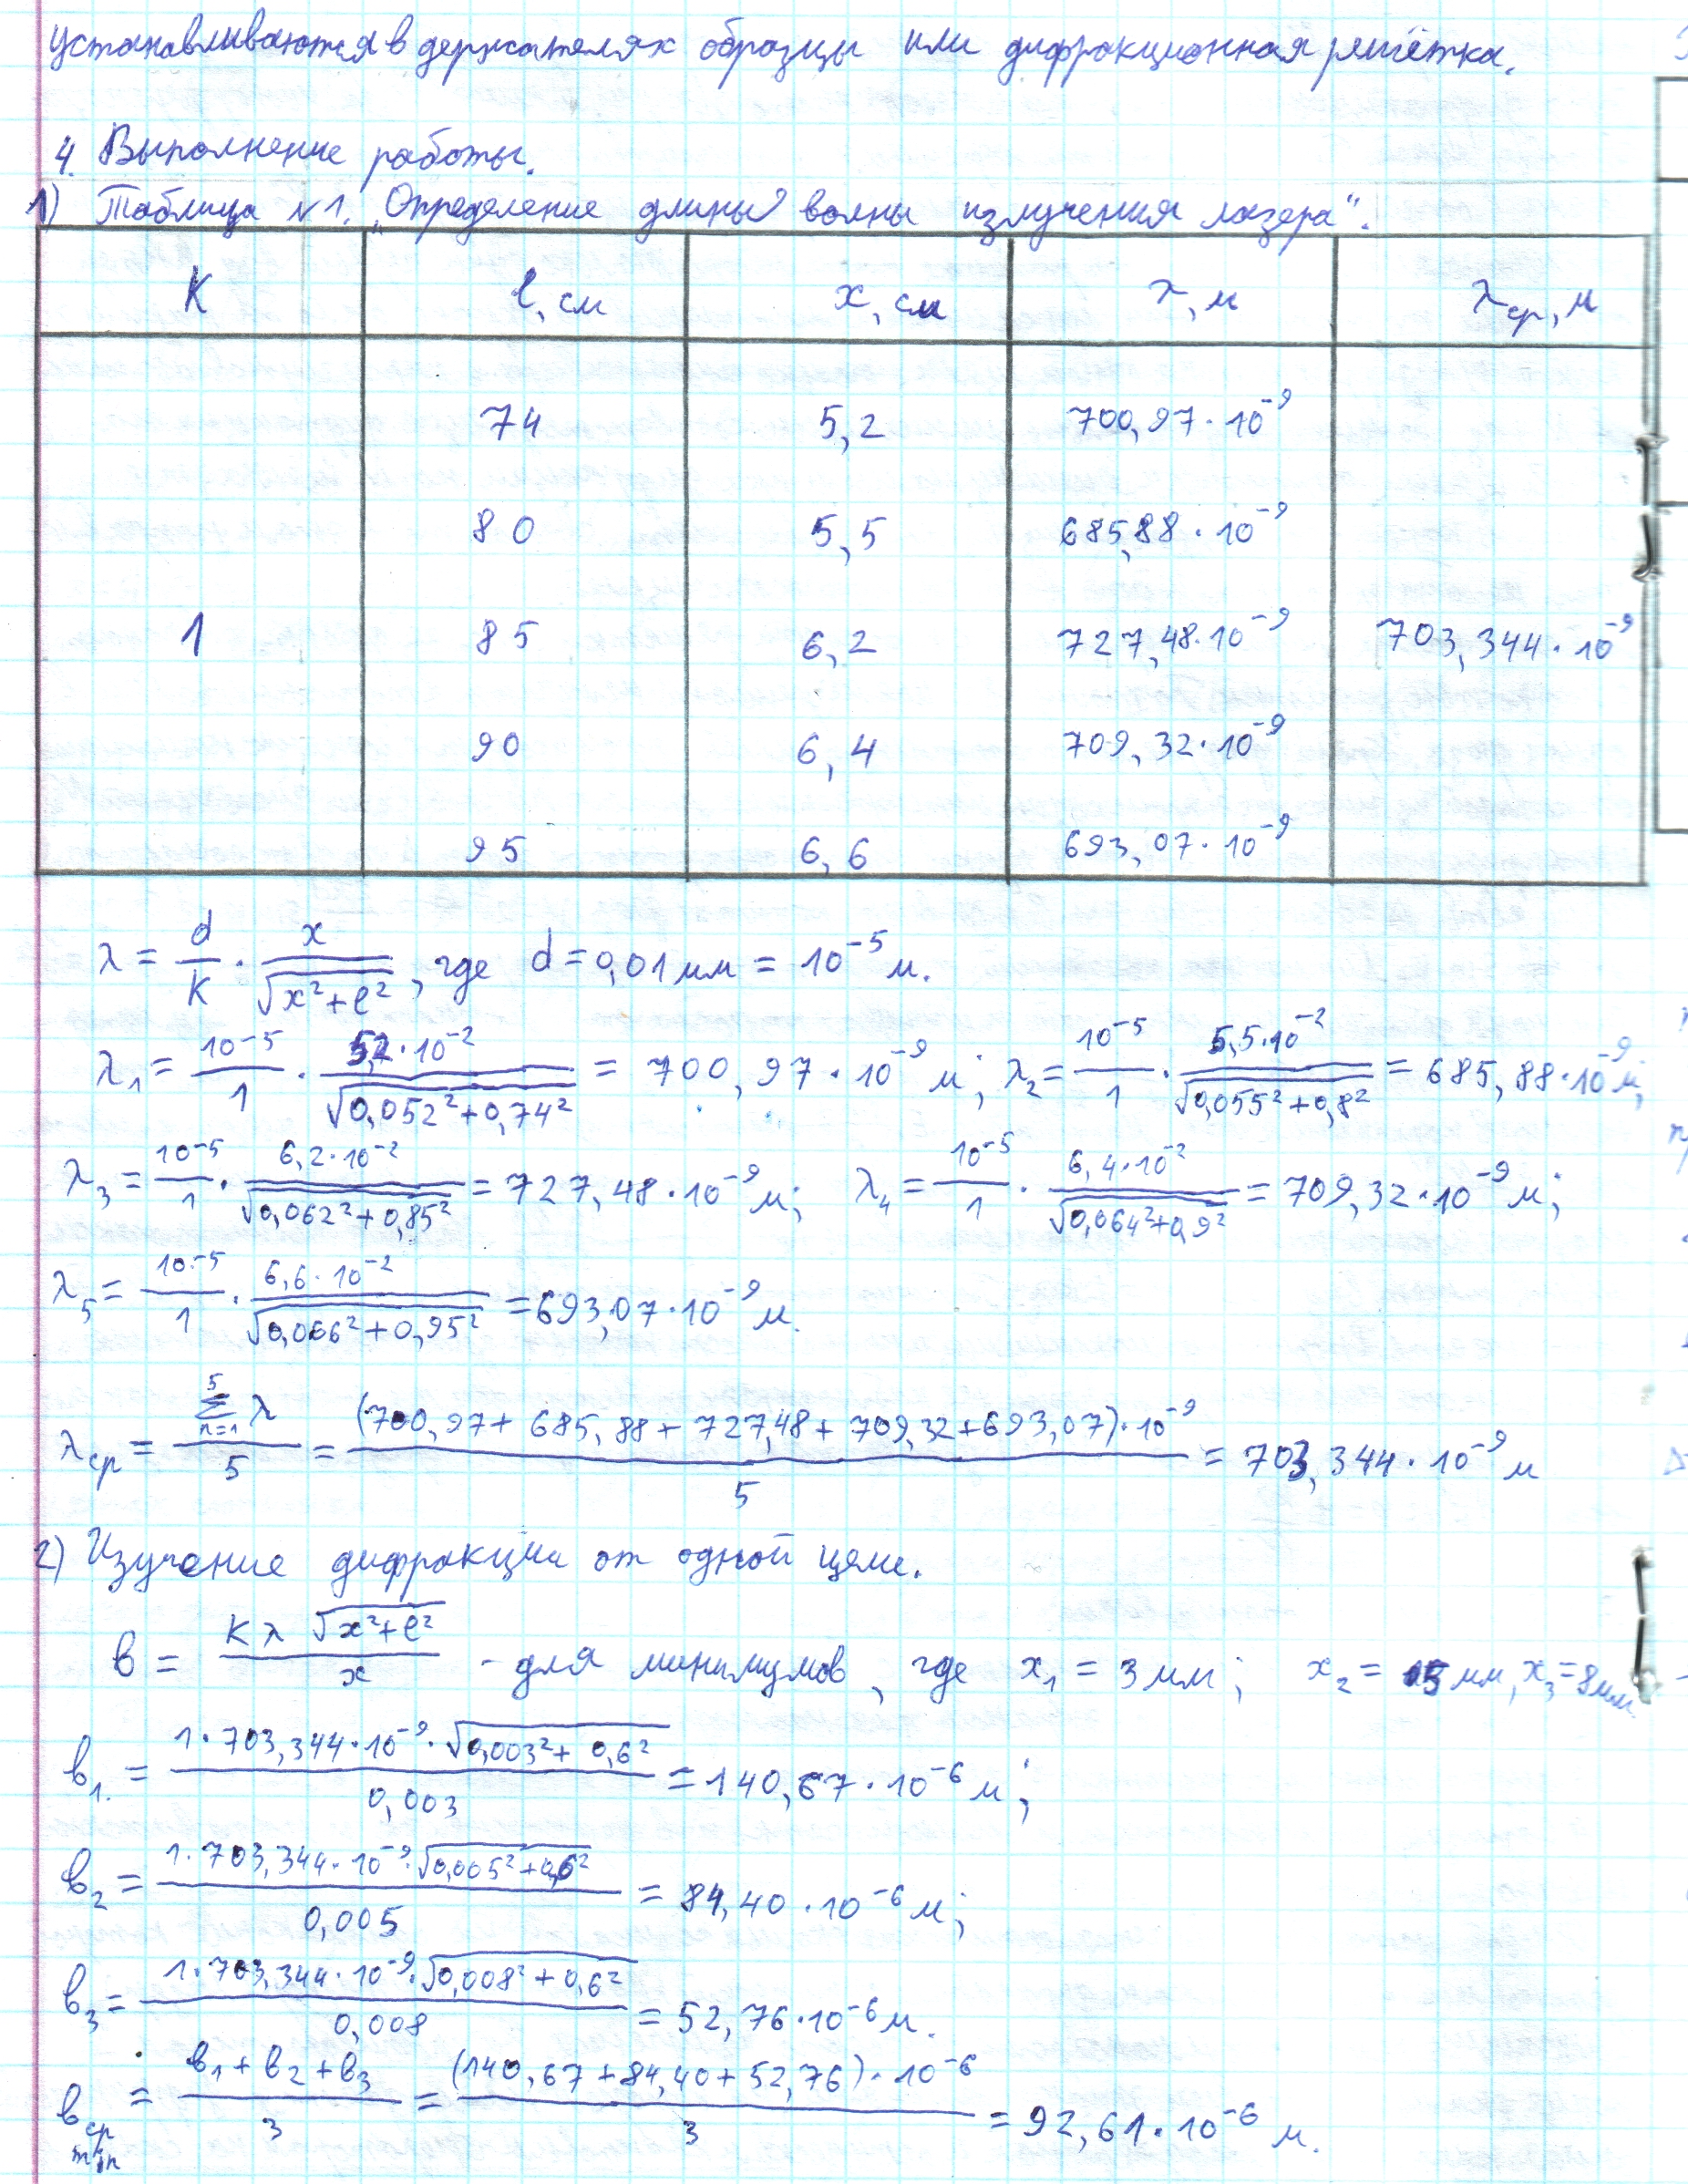 устанавливаются в держателях образцы или дифракционная решётка.
4. Выполнение работы.
1) Таблица №1. „Определение длины волны излучения лазера".
K l, см x, см λ, м λср, м
74 5,2 700,97·10⁻⁹
80 5,5 685,88·10⁻⁹
1 85 6,2 727,48·10⁻⁹ 703,344·10⁻⁹
90 6,4 709,32·10⁻⁹
95 6,6 693,07·10⁻⁹
λ = d/K · x/√(x²+l²), где d = 0,01 мм = 10⁻⁵ м.
λ₁ = 10⁻⁵/1 · 5,2·10⁻²/√(0,052²+0,74²) = 700,97·10⁻⁹ м; λ₂ = 10⁻⁵/1 · 5,5·10⁻²/√(0,055²+0,8²) = 685,88·10⁻⁹ м;
λ₃ = 10⁻⁵/1 · 6,2·10⁻²/√(0,062²+0,85²) = 727,48·10⁻⁹ м; λ₄ = 10⁻⁵/1 · 6,4·10⁻²/√(0,064²+0,9²) = 709,32·10⁻⁹ м;
λ₅ = 10⁻⁵/1 · 6,6·10⁻²/√(0,066²+0,95²) = 693,07·10⁻⁹ м.
λср = (5 Σ n=1 λ)/5 = (700,97 + 685,88 + 727,48 + 709,32 + 693,07)·10⁻⁹/5 = 703,344·10⁻⁹ м
2) Изучение дифракции от одной щели.
в = Kλ√(x²+l²)/x - для минимумов, где x₁ = 3 мм; x₂ = 5 мм, x₃ = 8 мм.
в₁. = 1·703,344·10⁻⁹·√(0,003²+0,6²)/0,003 = 140,67·10⁻⁶ м;
в₂ = 1·703,344·10⁻⁹·√(0,005²+0,6²)/0,005 = 84,40·10⁻⁶ м;
в₃ = 1·703,344·10⁻⁹·√(0,008²+0,6²)/0,008 = 52,76·10⁻⁶ м.
вср min = (в₁+в₂+в₃)/3 = (140,67+84,40+52,76)·10⁻⁶/3 = 92,61·10⁻⁶ м.